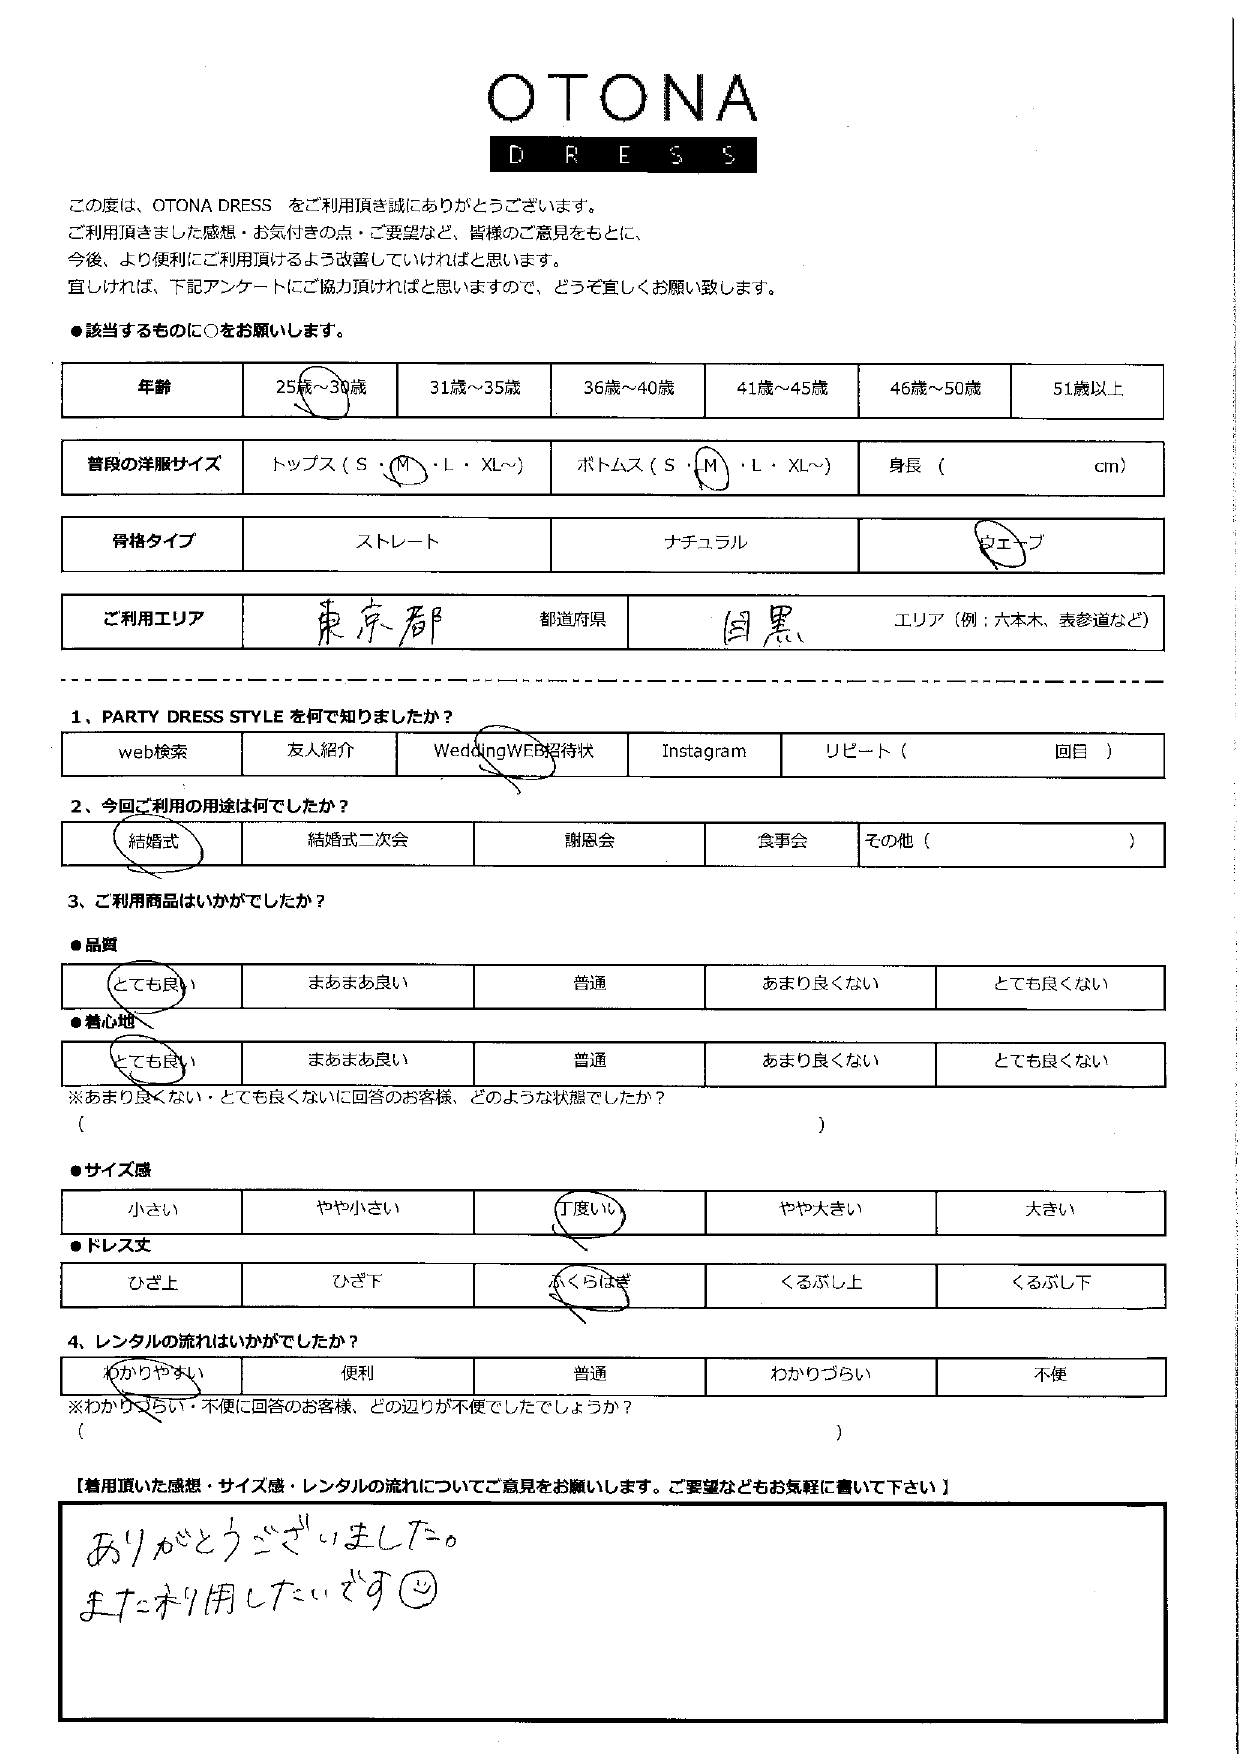 OTONA
DRESS
この度は、OTONA DRESS をご利用頂き誠にありがとうございます。
ご利用頂きました感想・お気付きの点・ご要望など、皆様のご意見をもとに、
今後、より便利にご利用頂けるよう改善していければと思います。
宜しければ、下記アンケートにご協力頂ければと思いますので、どうぞ宜しくお願い致します。
●該当するものに○をお願いします。
年齢 25歳～30歳 31歳～35歳 36歳～40歳 41歳～45歳 46歳～50歳 51歳以上
普段の洋服サイズ トップス ( S ・ M ・ L ・ XL～) ボトムス ( S ・ M ・ L ・ XL～) 身長 ( cm)
骨格タイプ ストレート ナチュラル ウェーブ
ご利用エリア 東京都 都道府県 目黒 エリア（例；六本木、表参道など）
1、PARTY DRESS STYLE を何で知りましたか？
web検索 友人紹介 WeddingWEB招待状 Instagram リピート（ 回目 ）
2、今回ご利用の用途は何でしたか？
結婚式 結婚式二次会 謝恩会 食事会 その他（ ）
3、ご利用商品はいかがでしたか？
●品質
とても良い まあまあ良い 普通 あまり良くない とても良くない
●着心地
とても良い まあまあ良い 普通 あまり良くない とても良くない
※あまり良くない・とても良くないに回答のお客様、どのような状態でしたか？
( )
●サイズ感
小さい やや小さい 丁度いい やや大きい 大きい
●ドレス丈
ひざ上 ひざ下 ふくらはぎ くるぶし上 くるぶし下
4、レンタルの流れはいかがでしたか？
わかりやすい 便利 普通 わかりづらい 不便
※わかりづらい・不便に回答のお客様、どの辺りが不便でしたでしょうか？
( )
【着用頂いた感想・サイズ感・レンタルの流れについてご意見をお願いします。ご要望などもお気軽に書いて下さい 】
ありがとうございました。
また利用したいです☺